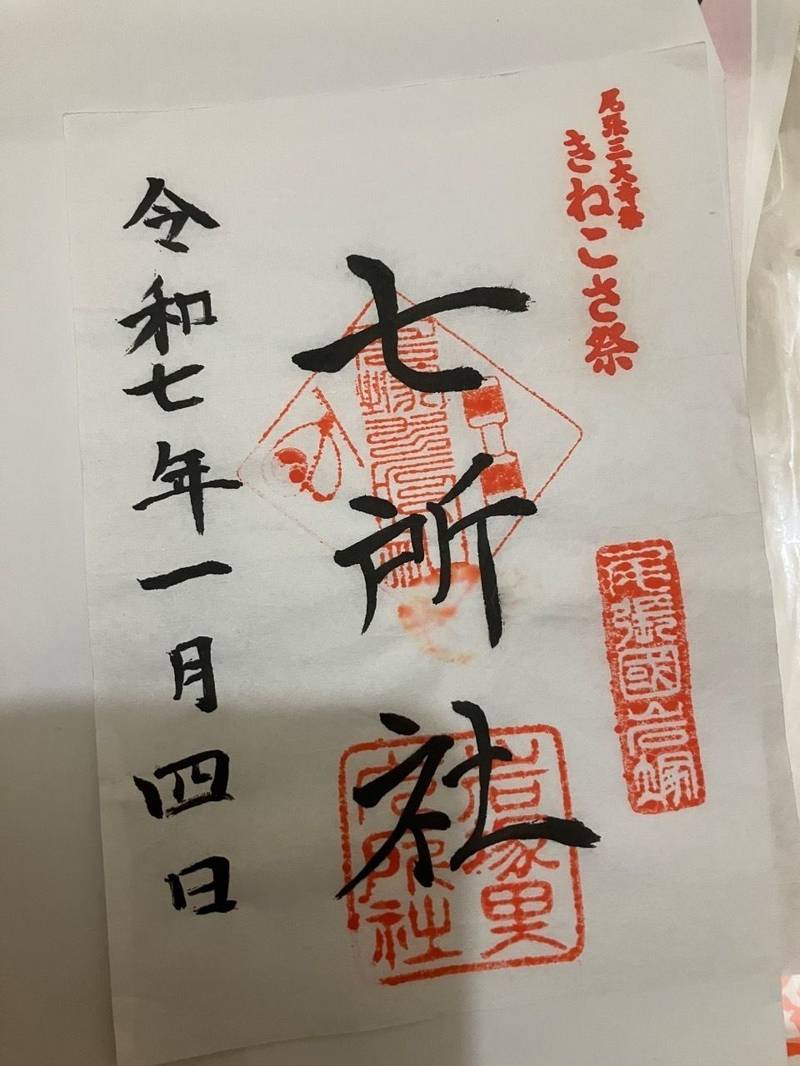 尾張三大奇祭
きねこさ祭
尾張國岩塚
七所社
岩塚里
七所社
令和七年一月四日